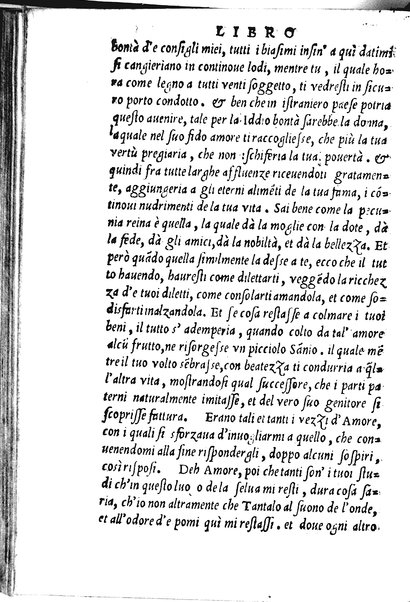 LIBRO
bontà d'e consigli miei, tutti i biasimi insin' a quì datimi
si cangieriano in continoue lodi, mentre tu, il quale ho=
ra come legno a tutti venti soggetto, ti vedresti in sicu=
ro porto condotto. & ben che in istraniero paese potria
questo auenire, tale per la Iddio bontà sarebbe la donna,
laquale nel suo fido amore ti raccogliesse, che più la tua
vertù pregiaria, che non ischiferia la tua pouertà. &
quindi fra tutte larghe affluenze riceuendoti gratamen=
te, aggiungeria a gli eterni alimẽti de la tua fama, i cõ=
tinoui nudrimenti de la tua vita. Sai bene come la pecu=
nia reina è quella, la quale dà la moglie con la dote, dà
la fede, dà gli amici, dà la nobiltà, et dà la bellezza. Et
però quãdo quella similmente la desse a te, ecco che il tut
to hauendo, hauresti come dilettarti, veggẽdo la ricchez
za d'e tuoi diletti, come consolarti amandola, et come so=
disfarti inalzandola. Et se cosa restasse a colmare i tuoi
beni, il tutto s' ademperia, quando colto da tal' amore
alcũ frutto, ne risorgesse vn picciolo Sãnio. il quale mẽ
tre il tuo volto sẽbrasse, con beatezza ti condurria a q̃l
l'altra vita, mostrandosi qual successore, che i parti pa
terni naturalmente imitasse, et del vero suo genitore si
scoprisse fattura. Erano tali et tanti i vezzi d'Amore,
con i quali si sforzaua d'inuogliarmi a quello, che con=
uenendomi alla fine rispondergli, doppo alcuni sospiri,
così risposi. Deh Amore, poi che tanti son' i tuoi stu
di ch'in questo luo o de la selua mi resti, dura cosa sa=
ria, ch'io non altramente che Tantalo al suono de l'onde,
et all'odore d'e pomi quì mi restassi. et doue ogni altro